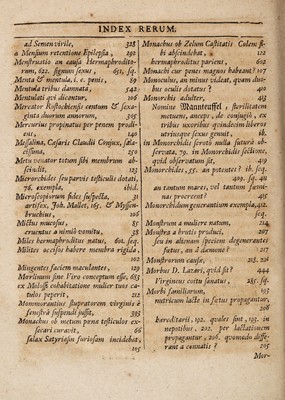 INDEX RERUM.
ad Semen virile, 328
a Mensium retentione Epilepsia, 292
Menstruatio an causa Hermaphrodito-
rum, 622. signum sexus, 651, sq.
Menta & mentula, i. e. penis, 89
Mentula tribus damnata, 542
Mentulati qui dicantur, 106
Mercator Rostochiensis centum & sexa-
ginta duorum annorum, 305
Mercurius propinatus per penem prodi-
ens, 140
Messalina, Casaris Claudii Conjux, sala-
cissima, 250
Metu venator totum sibi membrum ab-
scindit, 123
Microrchides seu parvis testiculis dotati,
76. exempla, ibid.
Microscopiorum fides suspecta, 31
artifex, Joh. Mallet, 165. & Musson-
bruchius, 106
Mictus mucosus, 85
cruentus a nimiâ vomitu, 328
Miles hermaphroditus natus, 601. seq.
Milites occisos habere membra rigida,
102
Mingentes faciem maculantes, 129
Merlinum sine Viro conceptum esse, 653
ex Molossi cohabitatione mulier tuos ca-
tulos peperit, 212
Mommorantius stupratorem virginis è
fenestrâ suspendi jussit, 393
Monachus ob metum pœna testiculos ex-
secari curavit, 66
salax Satyriasin furiosam incidebat,
105
Monachus ob Zelum Castitatis Coleum si-
bi abscindebat, 122
hermaphroditus pariens, 602
Monachi cur penes magnos habeant? 107
Monoculus, an minus videat, quam duo-
bus oculis dotatus? 400
Monorchis adulter, 413
Nomine Manteuffel, sterilitatem
metuens, anceps, de conjugio, ex
tribus uxoribus quindecim liberos
utriusque sexus genuit, ib.
in Monorchidis scroto nulla futura ob-
servata, 79. in Monorchidis sectione,
quid observatum sit, 419
Monorchides, 55. an potentes? ib. seq.
419. seq. 411
an tantum mares, vel tantum fœmi-
nas procreent? 415
Monorchidum generantium exempla, 412.
seq.
Monstrum a muliere natum, 214
Monstra a brutis producı, 207
seu in alienam speciem degenerantes
fœtus, an à dæmone? 217
Monstrorum causæ, 215. 216
Morbus D. Lazari, quid sit? 444
Virgineus coitu sanatus, 285. sq.
Morbi familiarium, 205
nutricum lacte in fœtus propagantur,
208
hereditarii, 192. quales sint, 193. in
nepotibus, 202. per lactationem
propagantur, 208. quomodo diffe-
rant a connatis? 205
Mor-